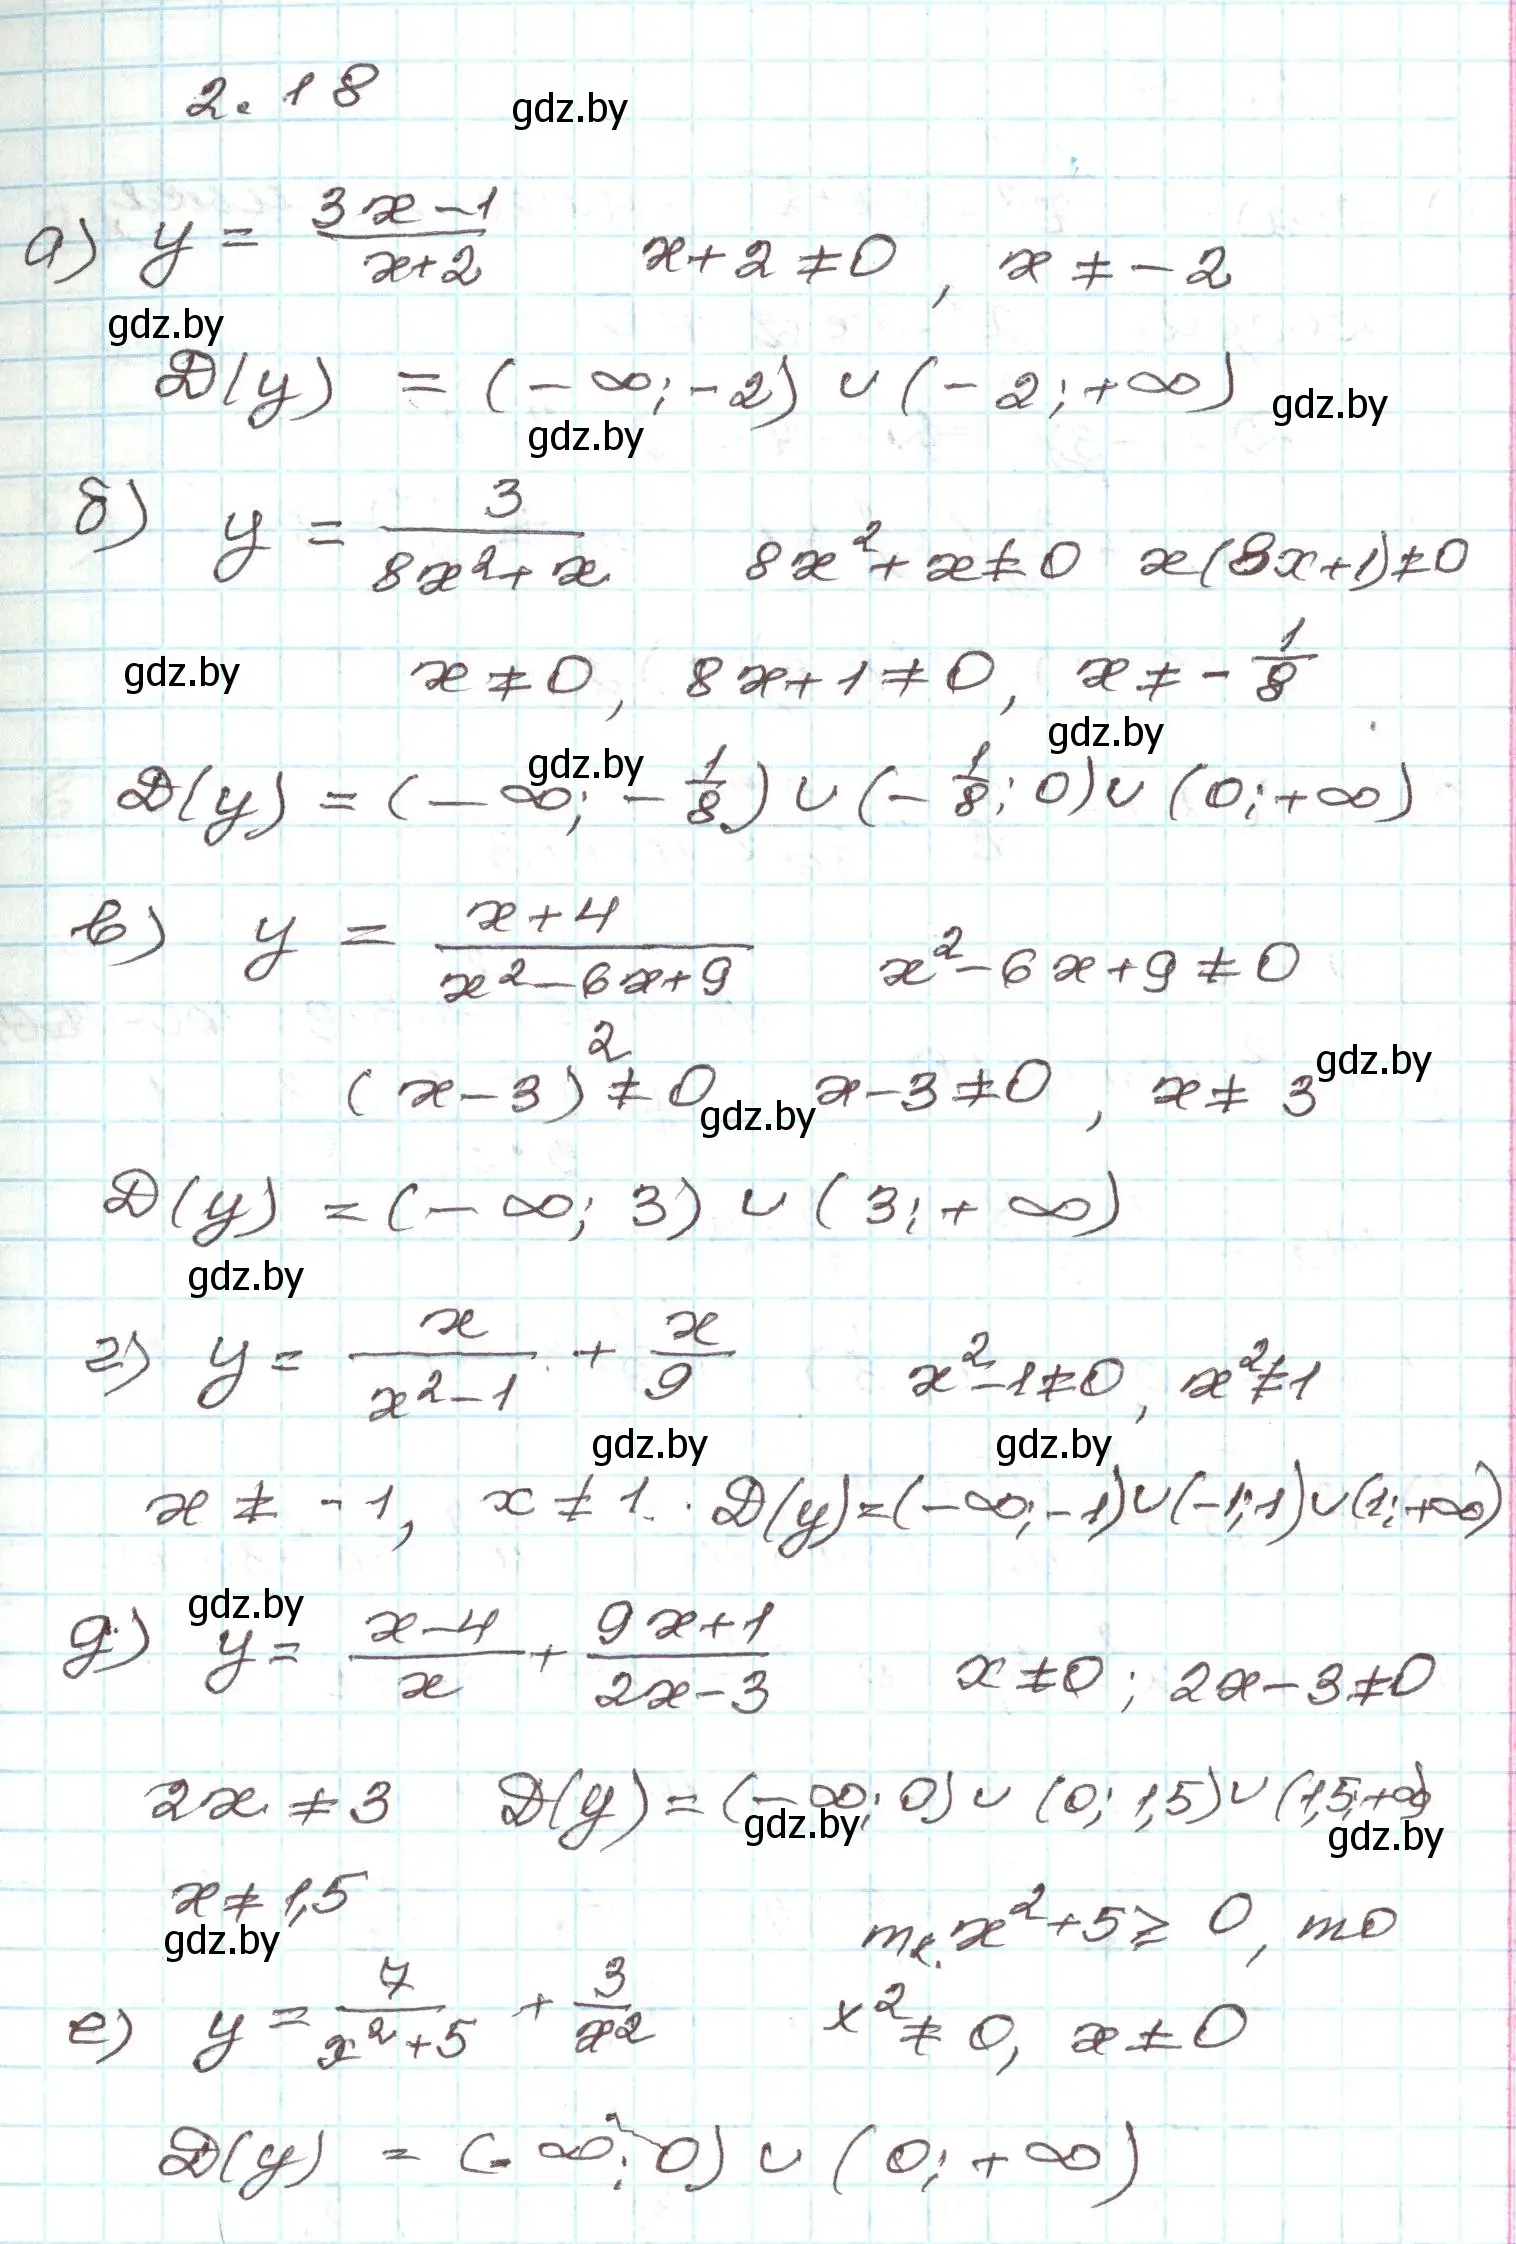 2.18 gdz.by
а) y = (3x-1)/(x+2) x+2≠0, x≠-2
gdz.by
D(y) = (-∞;-2) ∪ (-2;+∞) gdz.by
gdz.by
б) y = 3/(8x²+x) 8x²+x≠0 x(8x+1)≠0
gdz.by x≠0, 8x+1≠0, x≠-1/8
gdz.by
D(y) = (-∞; -1/8) ∪ (-1/8; 0) ∪ (0;+∞) gdz.by
в) y = (x+4)/(x²-6x+9) x²-6x+9≠0
(x-3)²≠0 x-3≠0, x≠3 gdz.by
gdz.by
D(y) = (-∞; 3) ∪ (3;+∞)
gdz.by
г) y = x/(x²-1) + x/9 x²-1≠0, x²≠1
gdz.by gdz.by
x≠-1, x≠1. D(y)=(-∞;-1)∪(-1;1)∪(1;+∞)
gdz.by
д) y = (x-4)/x + (9x+1)/(2x-3) x≠0; 2x-3≠0
2x≠3 D(y)=(-∞;0)∪(0;1,5)∪(1,5;+∞)
gdz.by gdz.by
x≠1,5 т.к. x²+5≥0, то
gdz.by
е) y = 7/(x²+5) + 3/x² x²≠0, x≠0
D(y) = (-∞;0) ∪ (0;+∞)